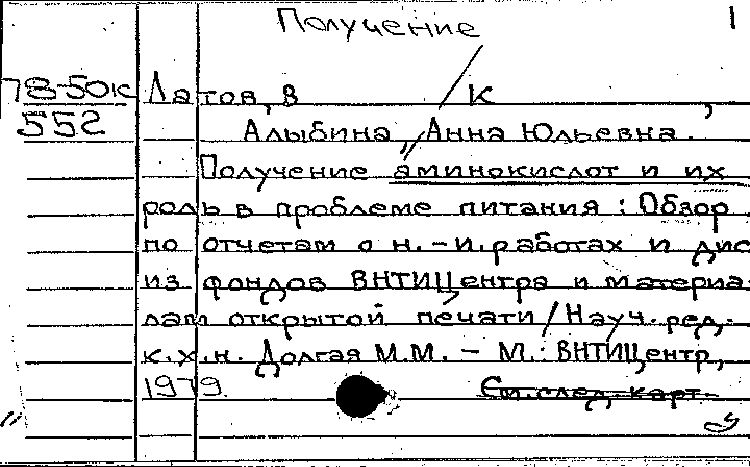 Получение
78-50к Латов, В К
552 Алыбина, Анна Юльевна.
Получение аминокислот и их
роль в проблеме питания : Обзор
по отчетам о н.-и. работах и дис
из фондов ВНТИЦентра и материа-
лам открытой печати / Науч. ред.
к.х.н. Долгая М.М. - М.: ВНТИЦентр,
1979. См. след. карт.